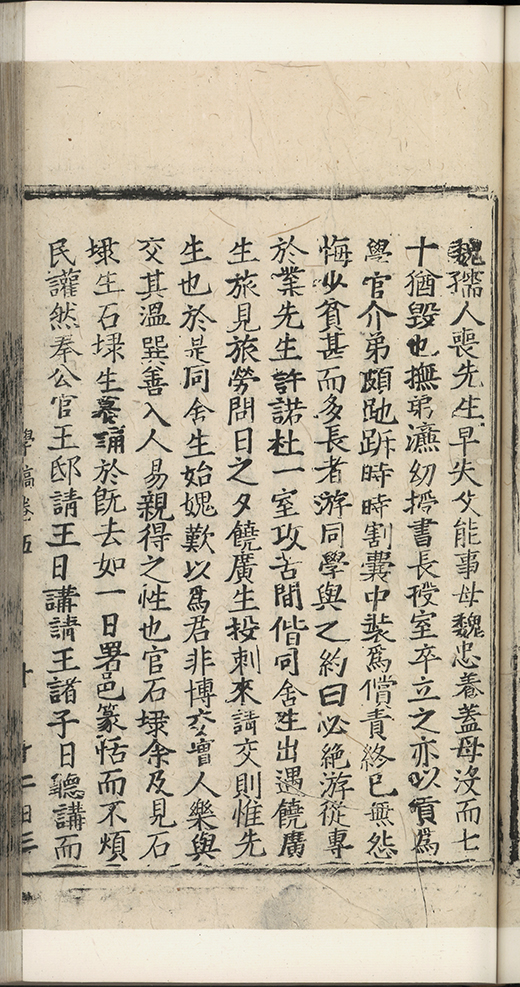 魏孺人喪先生早失父能事母魏忠養蓋母沒而七
十猶毀也撫弟瀌幼授書長授室卒立之亦以貢為
學官介弟頗跅時時割囊中裝為償責終已無怨
悔少貧甚而多長者游同學與之約曰必絶游從專
於業先生許諾杜一室攻苦間偕同舍生出遇饒廣
生旅見旅勞問日之夕饒廣生投刺來請交則惟先
生也於是同舍生始媿歎以為君非博交嘗人樂與
交其溫巽善入人易親得之性也官石埭余及見石
埭生石埭生慕誦於旣去如一日署邑篆恬而不煩
民讙然奉公官王邸請王日講請王諸子日聽講而
學稿卷五